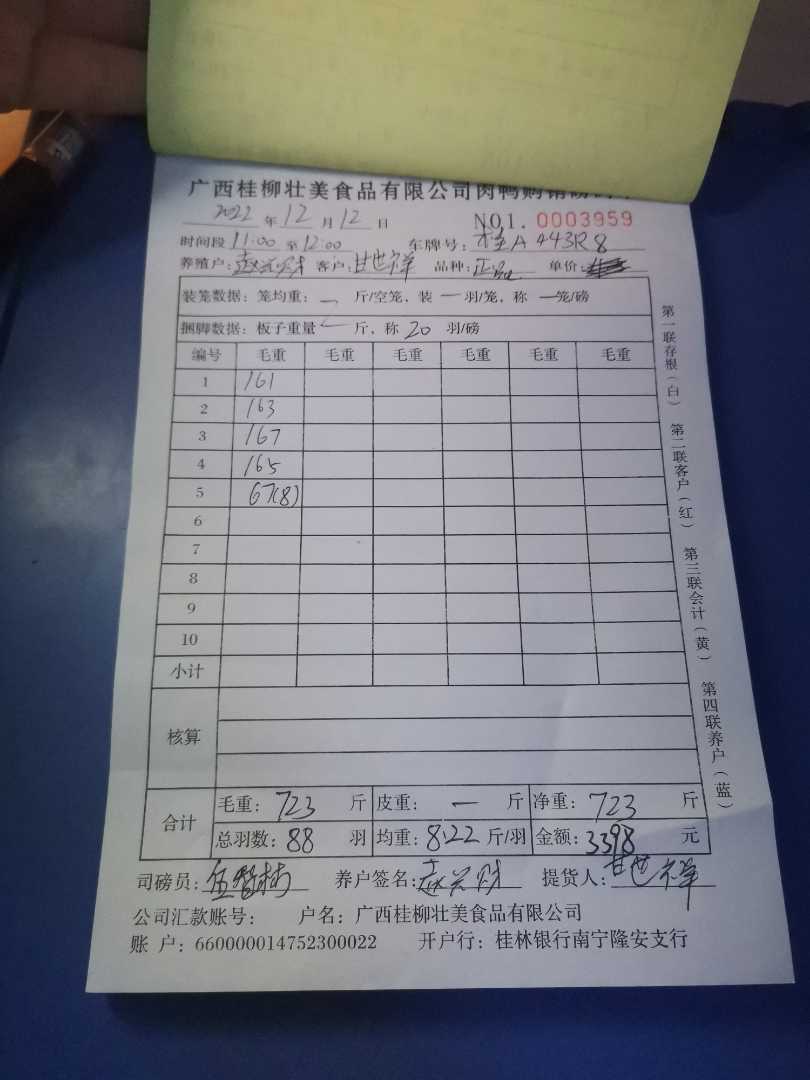 广西桂柳壮美食品有限公司肉鸭购销
2022 年 12 月 12 日 NO1. 0003959
时间段 11:00 至 12:00 车牌号: 桂A 443R8
养殖户: 赵兴财 客户: 甘世祥 品种: 正品 单价:
装笼数据: 笼均重: — 斤/空笼, 装 — 羽/笼, 称 — 笼/磅
捆脚数据: 板子重量 — 斤, 称 20 羽/磅
编号 毛重 毛重 毛重 毛重 毛重 毛重
1 161
2 163
3 167
4 165
5 67(8)
6
7
8
9
10
小计
核算
合计 毛重: 723 斤 皮重: — 斤 净重: 723 斤
总羽数: 88 羽 均重: 8.22 斤/羽 金额: 3398 元
司磅员: 养户签名: 赵兴财 提货人: 甘世祥
公司汇款账号: 户名: 广西桂柳壮美食品有限公司
账 户: 660000014752300022 开户行: 桂林银行南宁隆安支行
第一联存根(白) 第二联客户(红) 第三联会计(黄) 第四联养户(蓝)